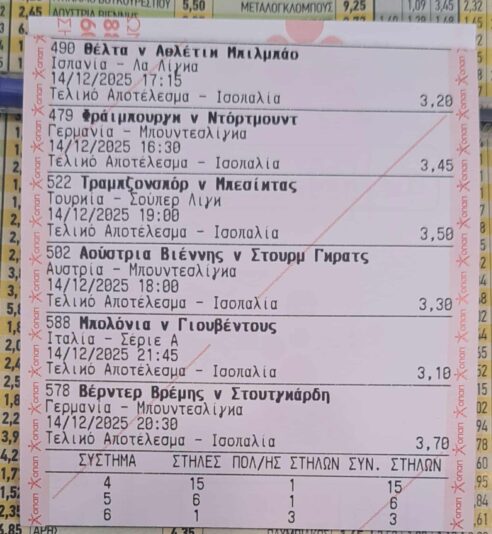 5,50
ΜΕΤΑΛΟΓΚΛΟΜΠΟΥΣ 9,25
490 Θέλτα ν Αθλέτικ Μπιλμπάο
Ισπανία - Λα Λίγκα
14/12/2025 17:15
Τελικό Αποτέλεσμα - Ισοπαλία 3,20
479 Φράιμπουργκ ν Ντόρτμουντ
Γερμανία - Μπουντεσλίγκα
14/12/2025 16:30
Τελικό Αποτέλεσμα - Ισοπαλία 3,45
522 Τραμπζονσπόρ ν Μπεσίκτας
Τουρκία - Σούπερ Λιγκ
14/12/2025 19:00
Τελικό Αποτέλεσμα - Ισοπαλία 3,50
502 Αούστρια Βιέννης ν Στουρμ Γκρατς
Αυστρία - Μπουντεσλίγκα
14/12/2025 18:00
Τελικό Αποτέλεσμα - Ισοπαλία 3,30
588 Μπολόνια ν Γιουβέντους
Ιταλία - Σέριε Α
14/12/2025 21:45
Τελικό Αποτέλεσμα - Ισοπαλία 3,10
578 Βέρντερ Βρέμης ν Στουτγκάρδη
Γερμανία - Μπουντεσλίγκα
14/12/2025 20:30
Τελικό Αποτέλεσμα - Ισοπαλία 3,70
ΣΥΣΤΗΜΑ ΣΤΗΛΕΣ ΠΟΛ/ΗΣ ΣΤΗΛΩΝ ΣΥΝ. ΣΤΗΛΩΝ
4 15 1 15
5 6 1 6
6 1 3 3